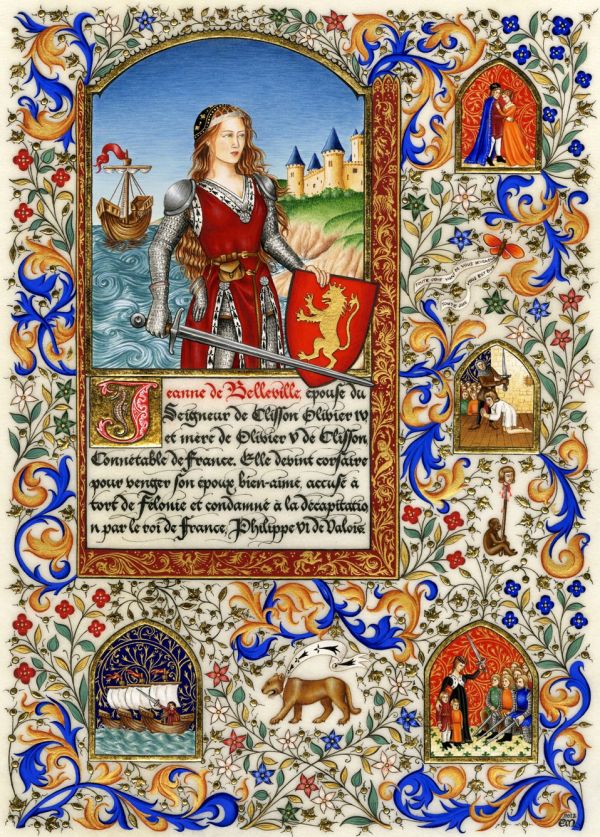 Jeanne de Belleville, épouse du
Seigneur de Clisson Olivier IV
et mère de Olivier V de Clisson,
Connétable de France. Elle devint corsaire
pour venger son époux bien-aimé, accusé à
tort de Félonie et condamné à la décapitatio
n par le roi de France, Philippe VI de Valois.
2012